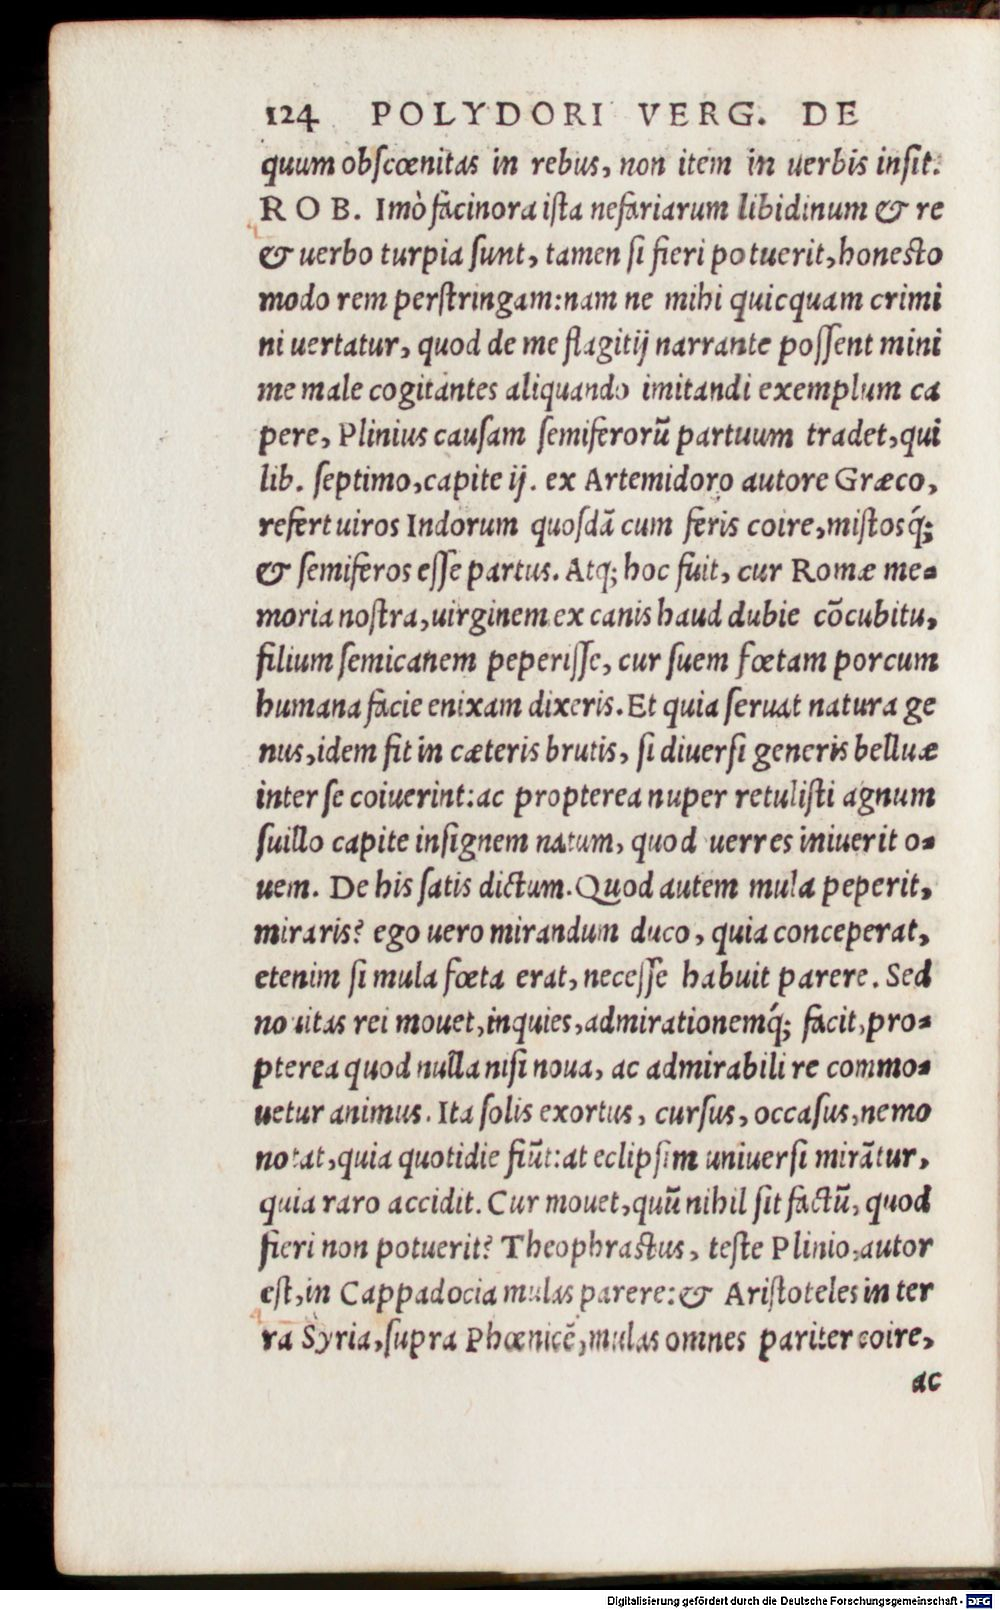 124 POLYDORI VERG. DE
quum obscœnitas in rebus, non item in uerbis insit.
ROB. Imò facinora ista nefariarum libidinum & re
& uerbo turpia sunt, tamen si fieri potuerit, honesto
modo rem perstringam: nam ne mihi quicquam crimi
ni uertatur, quod de me flagitij narrante possent mini
me male cogitantes aliquando imitandi exemplum ca
pere, Plinius causam semiferorũ partuum tradet, qui
lib. septimo, capite ij. ex Artemidoro autore Græco,
refert uiros Indorum quosdã cum feris coire, mistosq́;
& semiferos esse partus. Atq; hoc fuit, cur Romæ me-
moria nostra, uirginem ex canis haud dubie cõcubitu,
filium semicanem peperisse, cur suem fœtam porcum
humana facie enixam dixeris. Et quia seruat natura ge
nus, idem fit in cæteris brutis, si diuersi generis belluæ
inter se coiuerint: ac propterea nuper retulisti agnum
suillo capite insignem natum, quod uerres iniuerit o-
uem. De his satis dictum. Quod autem mula peperit,
miraris? ego uero mirandum duco, quia conceperat,
etenim si mula fœta erat, necesse habuit parere. Sed
nouitas rei mouet, inquies, admirationemq́; facit, pro-
pterea quod nulla nisi noua, ac admirabili re commo-
uetur animus. Ita solis exortus, cursus, occasus, nemo
notat, quia quotidie fiũt: at eclipsim uniuersi mirãtur,
quia raro accidit. Cur mouet, quũ nihil sit factũ, quod
fieri non potuerit? Theophrastus, teste Plinio, autor
est, in Cappadocia mulas parere: & Aristoteles in ter
ra Syria, supra Phœnicẽ, mulas omnes pariter coire,
ac
Digitalisierung gefördert durch die Deutsche Forschungsgemeinschaft - DFG